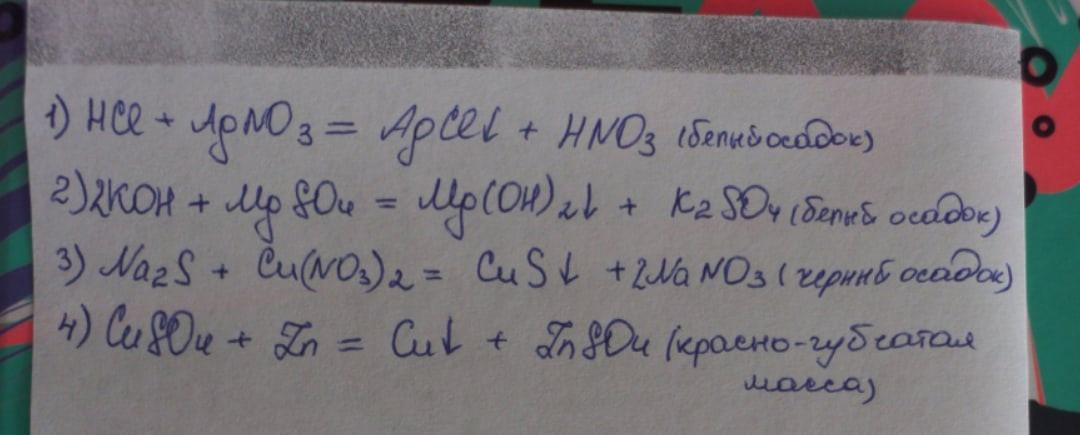 1) HCl + AgNO₃ = AgCl↓ + HNO₃ (белый осадок)
2) 2KOH + MgSO₄ = Mg(OH)₂↓ + K₂SO₄ (белый осадок)
3) Na₂S + Cu(NO₃)₂ = CuS↓ + 2NaNO₃ (черный осадок)
4) CuSO₄ + Zn = Cu↓ + ZnSO₄ (красно-губчатая
масса)